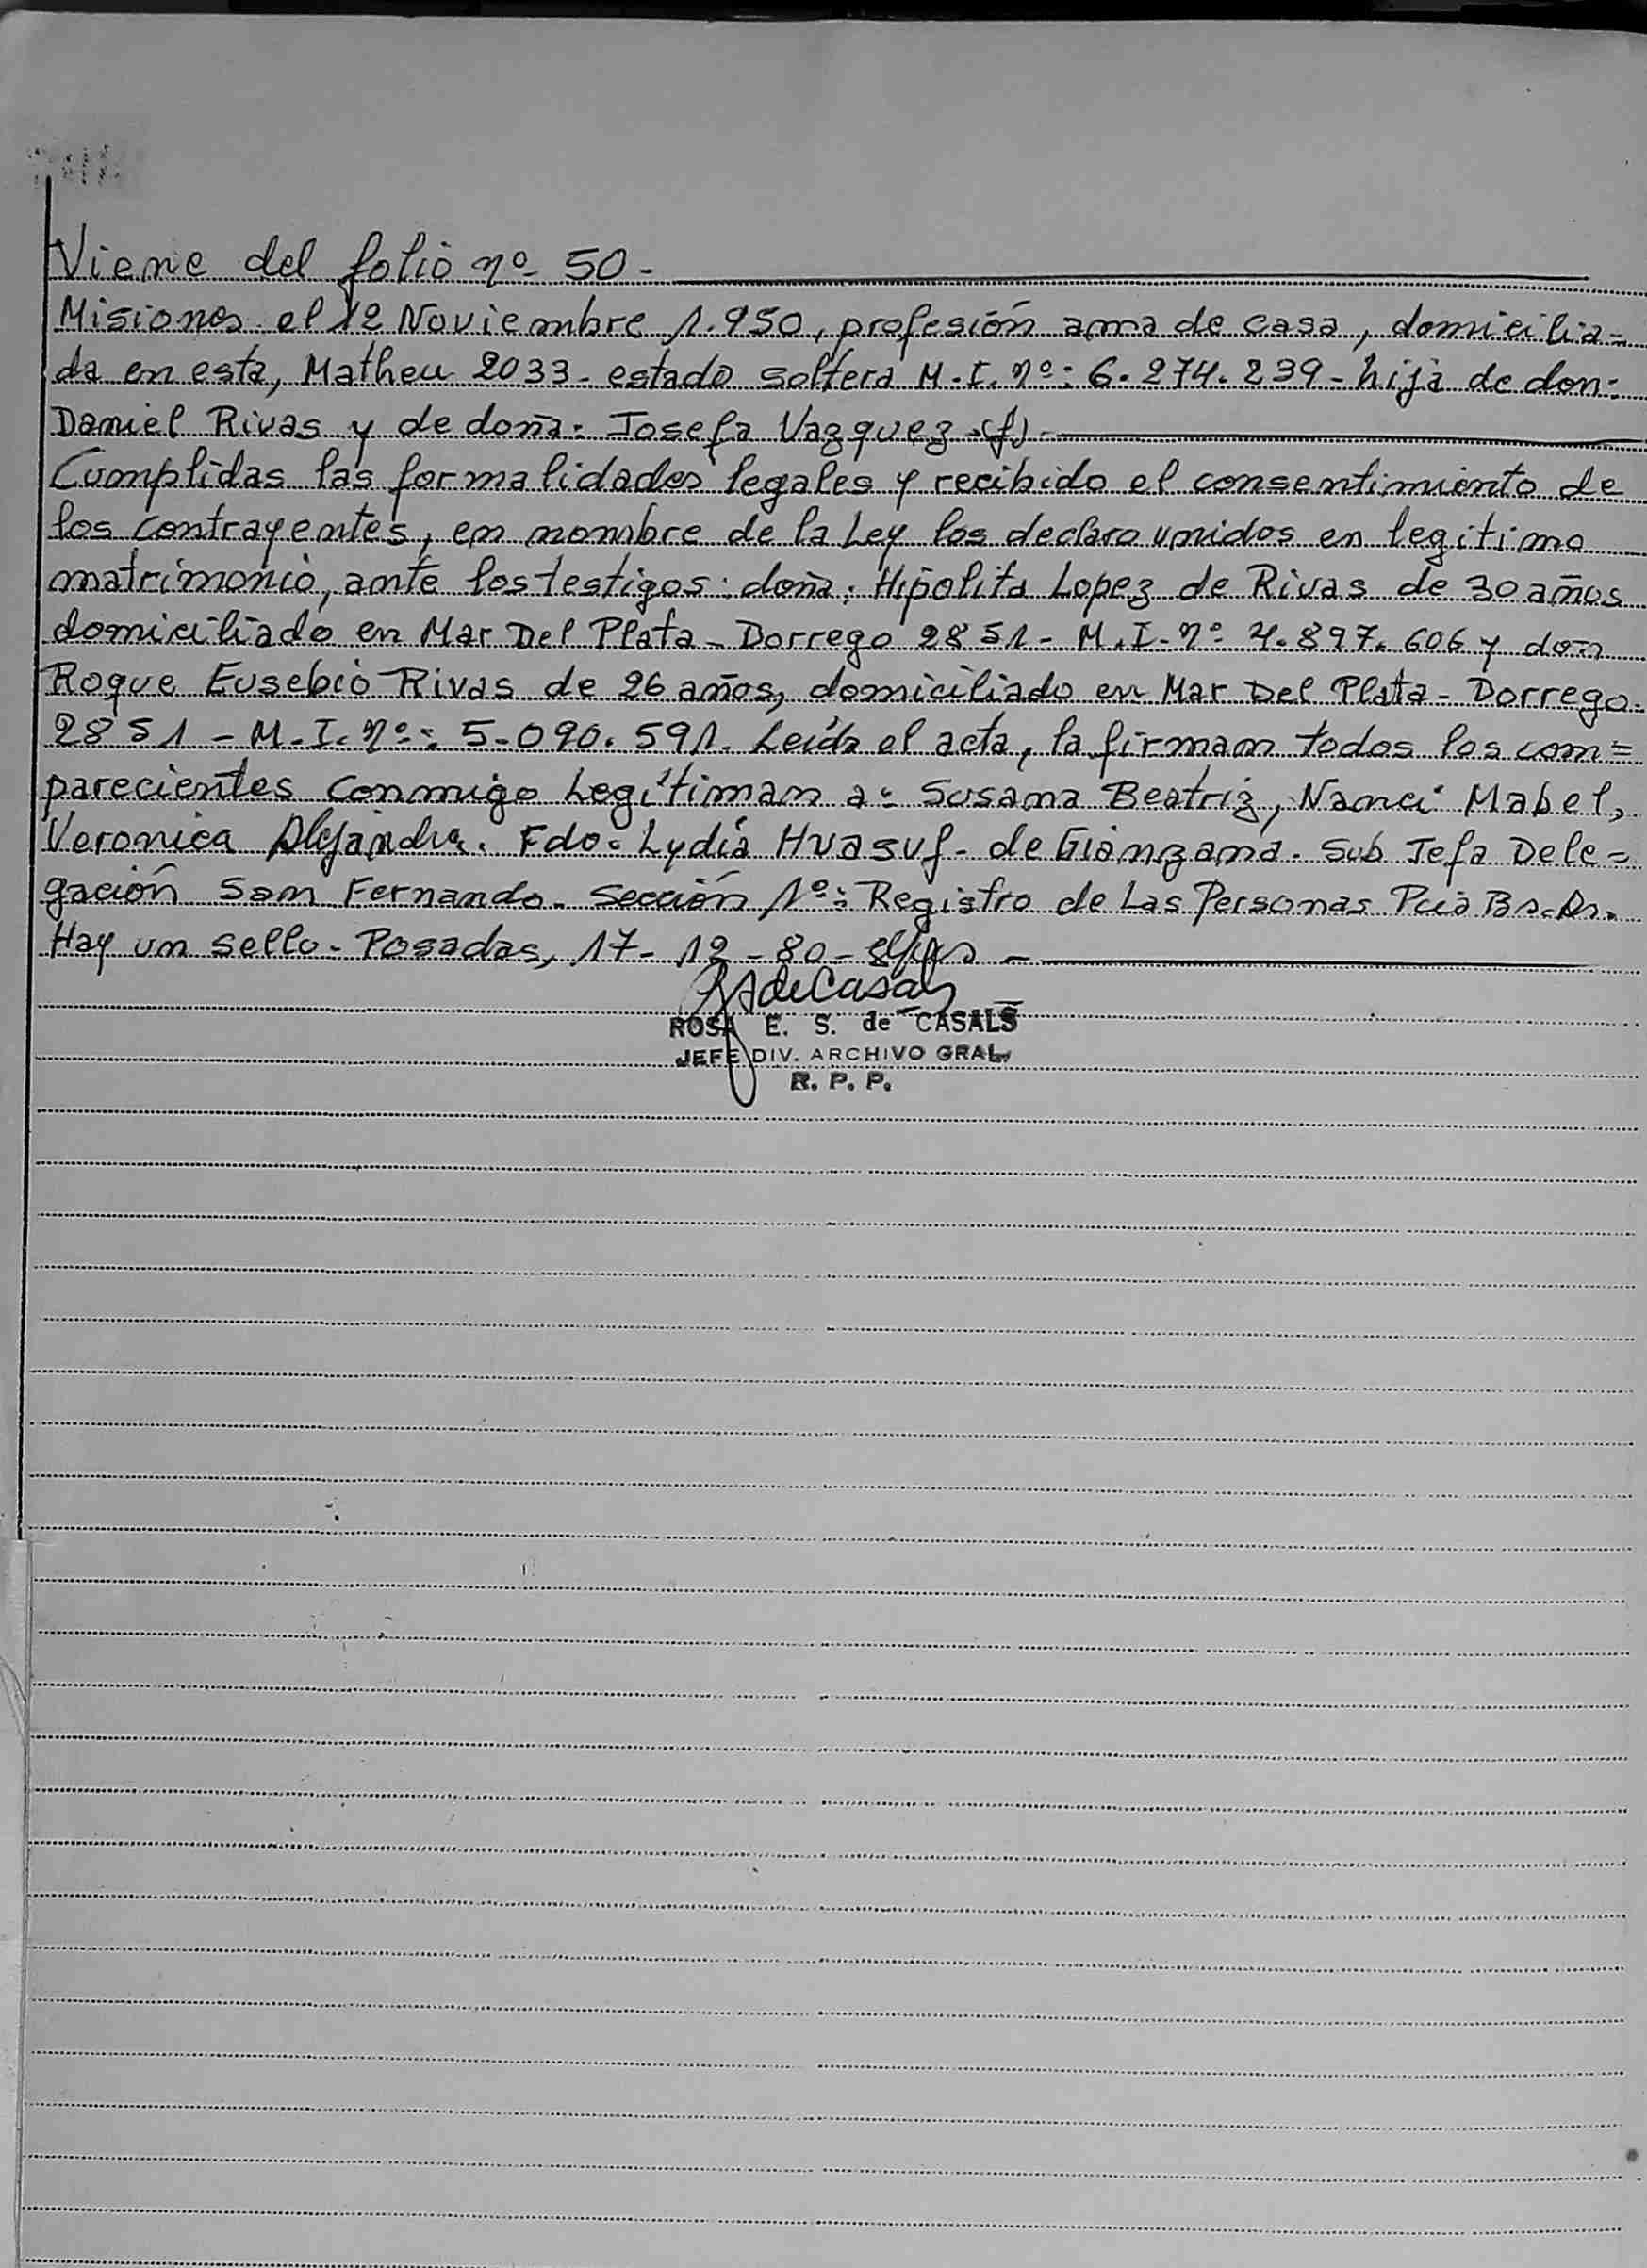 Viene del folio nº- 50-
Misiones el 12 Noviembre 1.950, profesión ama de casa, domicilia=
da en esta, Matheu 2033- estado soltera M.I. nº: 6.274.239- hija de don:
Daniel Rivas y de doña: Josefa Vazquez.(f).-
Cumplidas las formalidades legales y recibido el consentimiento de
los contrayentes, en nombre de la Ley los declaro unidos en legítimo
matrimonio, ante los testigos: doña: Hipólita Lopez de Rivas de 30 años
domiciliado en Mar Del Plata- Dorrego 2851- M.I.nº 4.897.606 y don
Roque Eusebio Rivas de 26 años, domiciliado en Mar Del Plata- Dorrego-
2851- M.I.nº: 5.090.591. Leída el acta, la firmam todos los com=
parecientes conmigo Legítiman a: Susana Beatriz, Nanci Mabel,
Veronica Alejandra. Fdo: Lydia Huasuf- de Gianzana. Sub Jefa Dele=
gación San Fernando- Sección 1º: Registro de Las Personas Pcia Bs.As.
Hay un sello- Posadas, 17-12-80-
ROSA E. S. de CASALS
JEFE DIV. ARCHIVO GRAL.
R. P. P.